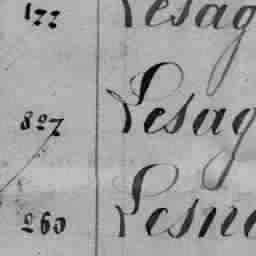 177 Lesag
827 Lesag
260 Lesne